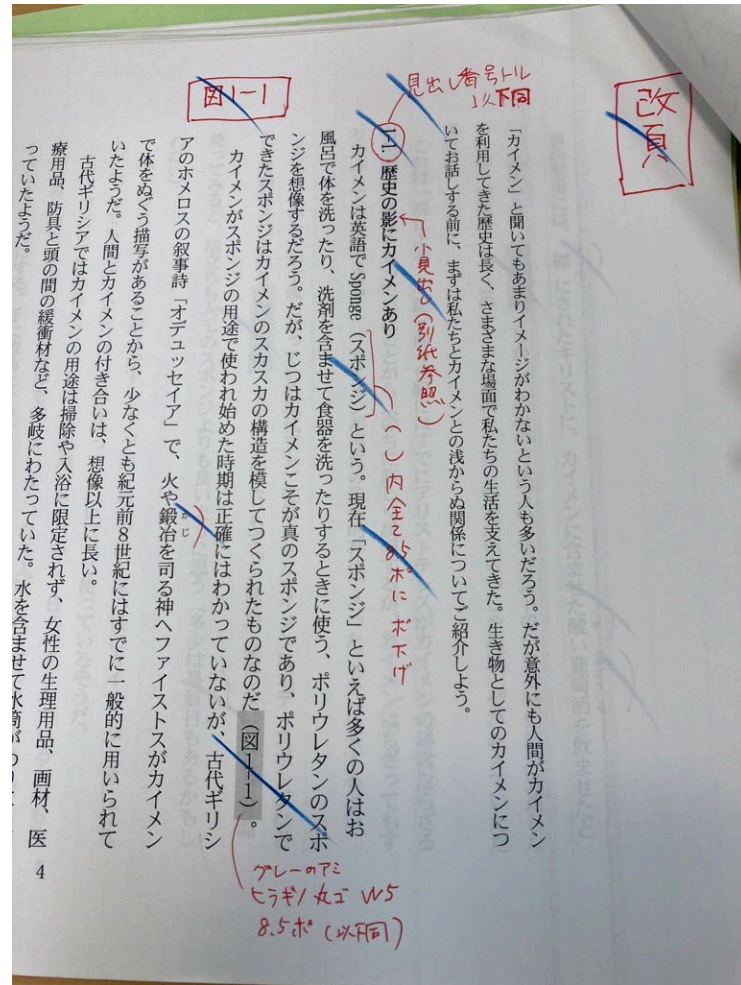 改頁
「カイメン」と聞いてもあまりイメージがわかないという人も多いだろう。だが意外にも人間がカイメン
を利用してきた歴史は長く、さまざまな場面で私たちの生活を支えてきた。生き物としてのカイメンにつ
いてお話しする前に、まずは私たちとカイメンとの浅からぬ関係についてご紹介しよう。
見出し番号トル
以下同
1-1 歴史の影にカイメンあり
小見出し(別紙参照)
カイメンは英語で Sponge(スポンジ)という。現在「スポンジ」といえば多くの人はお
( )内全て8.5ポにポ下げ
風呂で体を洗ったり、洗剤を含ませて食器を洗ったりするときに使う、ポリウレタンのスポ
ンジを想像するだろう。だが、じつはカイメンこそが真のスポンジであり、ポリウレタンで
できたスポンジはカイメンのスカスカの構造を模してつくられたものなのだ(図1-1)。
グレーのアミ
ヒラギノ丸ゴ W5
8.5ポ(以下同)
図1-1
カイメンがスポンジの用途で使われ始めた時期は正確にはわかっていないが、古代ギリシ
アのホメロスの叙事詩「オデュッセイア」で、火や鍛冶を司る神ヘファイストスがカイメン
かじ
で体をぬぐう描写があることから、少なくとも紀元前8世紀にはすでに一般的に用いられて
いたようだ。人間とカイメンの付き合いは、想像以上に長い。
古代ギリシアではカイメンの用途は掃除や入浴に限定されず、女性の生理用品、画材、医
療用品、防具と頭の間の緩衝材など、多岐にわたっていた。水を含ませて水筒が
っていたようだ。
4